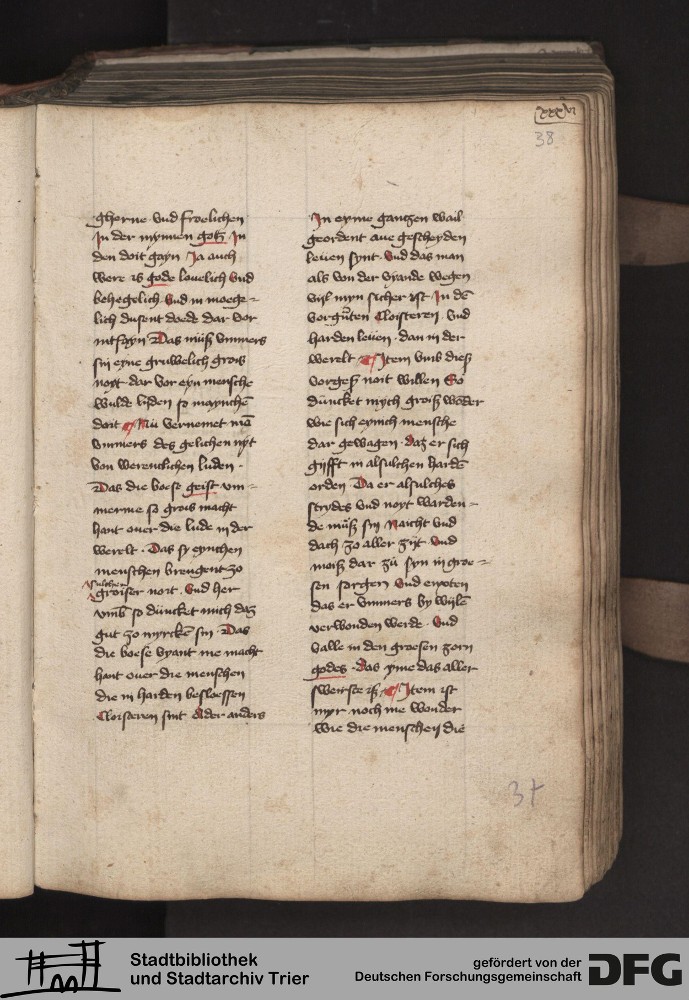 xxxvi
38
gherne vnd froelichen
In der mynnen gotz In
den doit gayn Ja auch
were is gode louelich vnd
behegelich vnd in moege-
lich dusent doede dar vor
intfayn Das müß vmmers
sin eyne gruwelich grois
noyt dar vor eyn mensche
wulde lyden so maynchē
doit Nü vernemet mā
vmmers des gelichen nyt
von werentlichen luden
Das die boese geist vm-
merme so grois macht
hant ouer die lude in der
werelt Das sy eynchen
menschen brengent zo
sulcher
groiser noit vnd her
vmb so düncket mich daz
gut zo myrckē sin Das
die boese vyant me macht
hant ouer die menschen
die in harden besloessen
Cloisteren sint Ader anders
In eyme gantzen wail
geordent aue gescheyden
leuen synt vnd das man
als von der vyande wegen
vijl myn sicher ist In dē
vorgūten Cloisteren vnd
harden leuen dan in der
werelt Item vmb dieß
vorgeß noit willen So
düncket mych groiß wōder
wie sich eynich mensche
dar gewagen daz er sich
gijfft in alsulchen hardē
orden Da er alsulches
strydes vnd noyt warden-
de müß sin Naicht vnd
dach zo aller zijt vnd
moiß dar zü syn in groe-
sen sorgen vnd enxten
das er vmmers by wijlē
verwonden werde vnd
valle in den groesen zorn
godes Das yme das aller
sweirste iß Item ist
myr noch me wonder
wie die menschen die
37
Stadtbibliothek
und Stadtarchiv Trier
gefördert von der
Deutschen Forschungsgemeinschaft
DFG